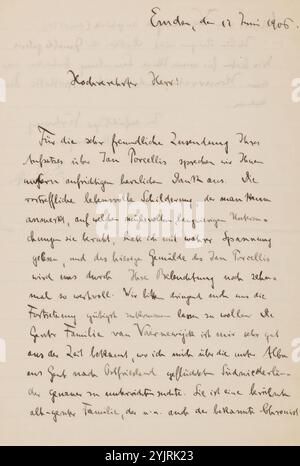 Emden, den 17 Juni 1906.
Hochverehrter Herr!
Für die sehr freundliche Zusendung Ihres
Aufsatzes über Jan Porcellis sprechen wir Ihnen
unsern aufrichtigen herzlichen Dank aus. Die
vortreffliche lebensvolle Schilderung, der man kaum
anmerkt, auf welchen mühevollen, langwierigen Untersu-
chungen sie beruht, habe ich mit wahrer Spannung
gelesen, und das hiesige Gemälde des Jan Porcellis
wird uns durch Ihre Beleuchtung noch zehn-
mal so wertvoll. Wir bitten dringend auch uns die
Fortsetzung gütigst zukommen lassen zu wollen. Die
Genter Familie van Vaernewijck ist mir sehr gut
aus der Zeit bekannt, wo ich mich über die unter Alba
aus Gent nach Ostfriesland geflüchteten Südniederlän-
der genauer zu unterrichten suchte. Sie ist eine berühmte
alt-genter Familie, der u. a. auch der bekannte Chronist
alamy
Image ID: 2YJRK23
www.alamy.com